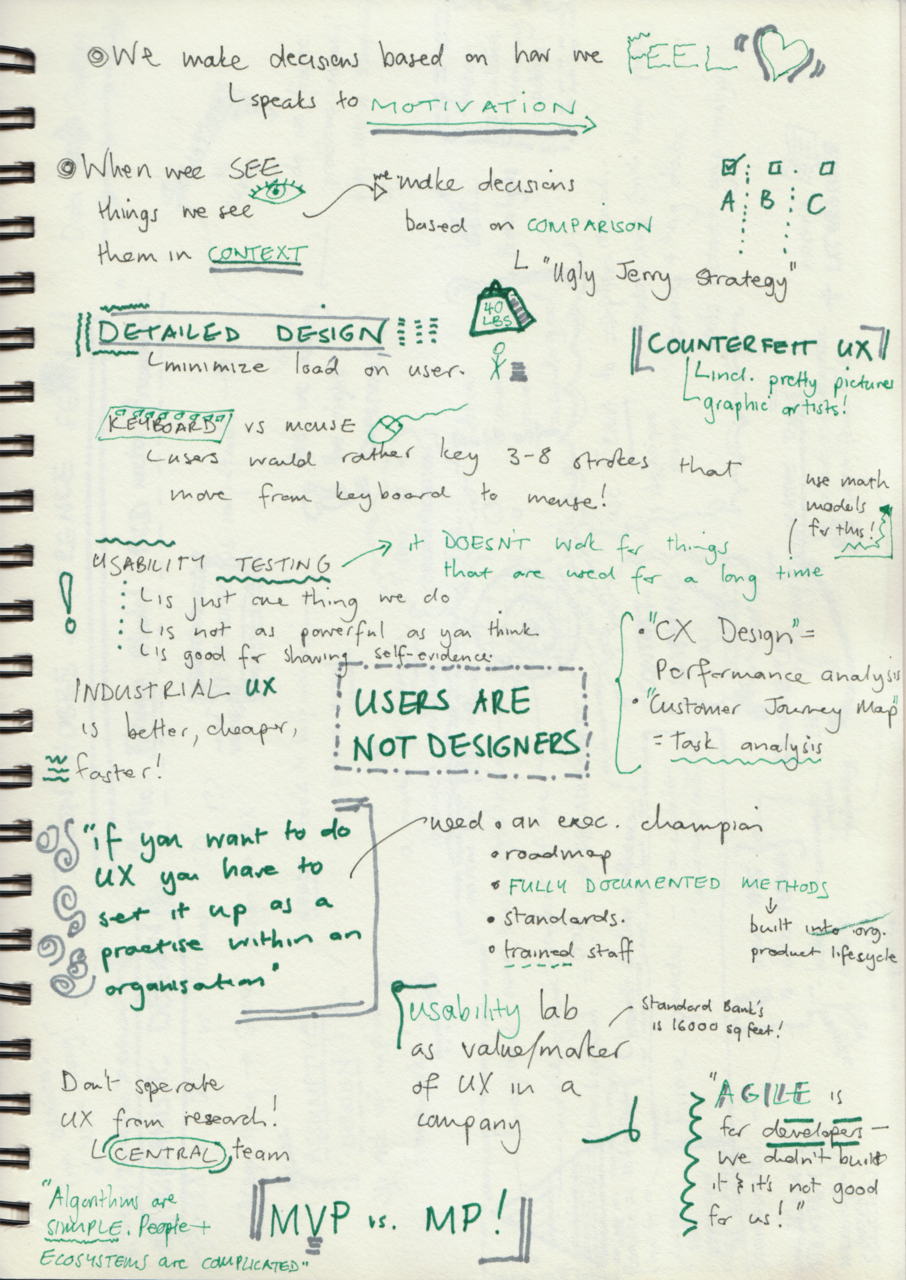 We make decisions based on how we FEEL
speaks to MOTIVATION
When wee SEE
things we see
them in CONTEXT
we make decisions
based on COMPARISON
"Ugly Jerry Strategy"
A B C
DETAILED DESIGN
minimize load on user.
40
LBS
COUNTERFEIT UX
incl. pretty pictures
graphic artists!
KEYBOARD vs mouse
users would rather key 3-8 strokes that
move from keyboard to mouse!
use math
models
for this!
USABILITY TESTING
it DOESN'T work for things
that are used for a long time
is just one thing we do
is not as powerful as you think
is good for showing self-evidence.
"CX Design" =
Performance analysis
"Customer Journey Map"
= task analysis
INDUSTRIAL UX
is better, cheaper,
faster!
USERS ARE
NOT DESIGNERS
"if you want to do
UX you have to
set it up as a
practise within an
organisation"
need • an exec. champion
• roadmap
• FULLY DOCUMENTED METHODS
• standards.
• trained staff
built into org.
product lifecycle
usability lab
as value/marker
of UX in a
company
Standard Bank's
is 16000 sq feet!
Don't seperate
UX from research!
CENTRAL team
"AGILE is
for developers –
we didn't build
it & it's not good
for us!"
"Algorithms are
SIMPLE. People +
ECOSYSTEMS are COMPLICATED"
MVP vs. MP!